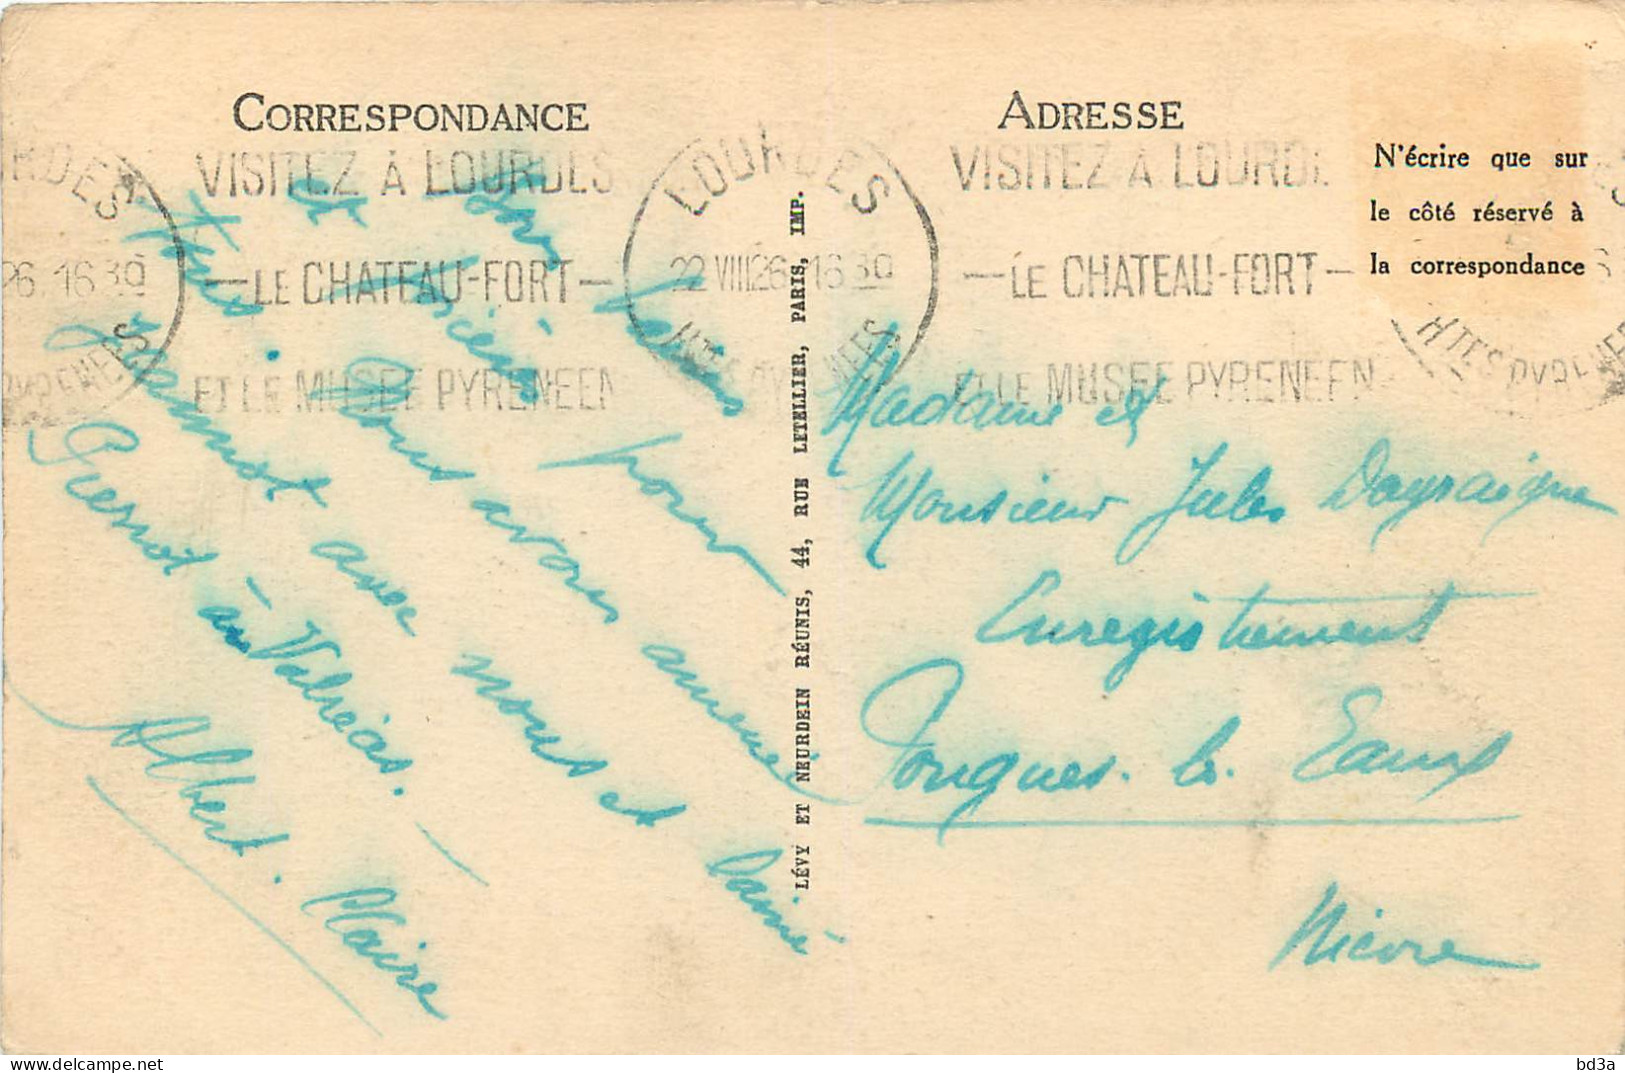 CORRESPONDANCE
ADRESSE
N'écrire que sur
le côté réservé à
la correspondance
VISITEZ À LOURDES
— LE CHATEAU-FORT —
ET LE MUSEE PYRENEEN
LOURDES
22 VIII 26 16 30
HTES PYRENEES
VISITEZ À LOURDE
— LE CHATEAU-FORT —
ET LE MUSEE PYRENEEN
HTES PYRENEES
RDES
26 16 30
PYRENEES
LÉVY ET NEURDEIN RÉUNIS, 44, RUE LETELLIER, PARIS, IMP.
Bons baisers pour
et
tous. Nous avons amené
Jeannot avec nous et laissé
Pierrot à Valréas.
Albert. Claire
Madame et
Monsieur Jules Dayraigne
Enregistrement
Pougues-les-Eaux
Nièvre
bd3a